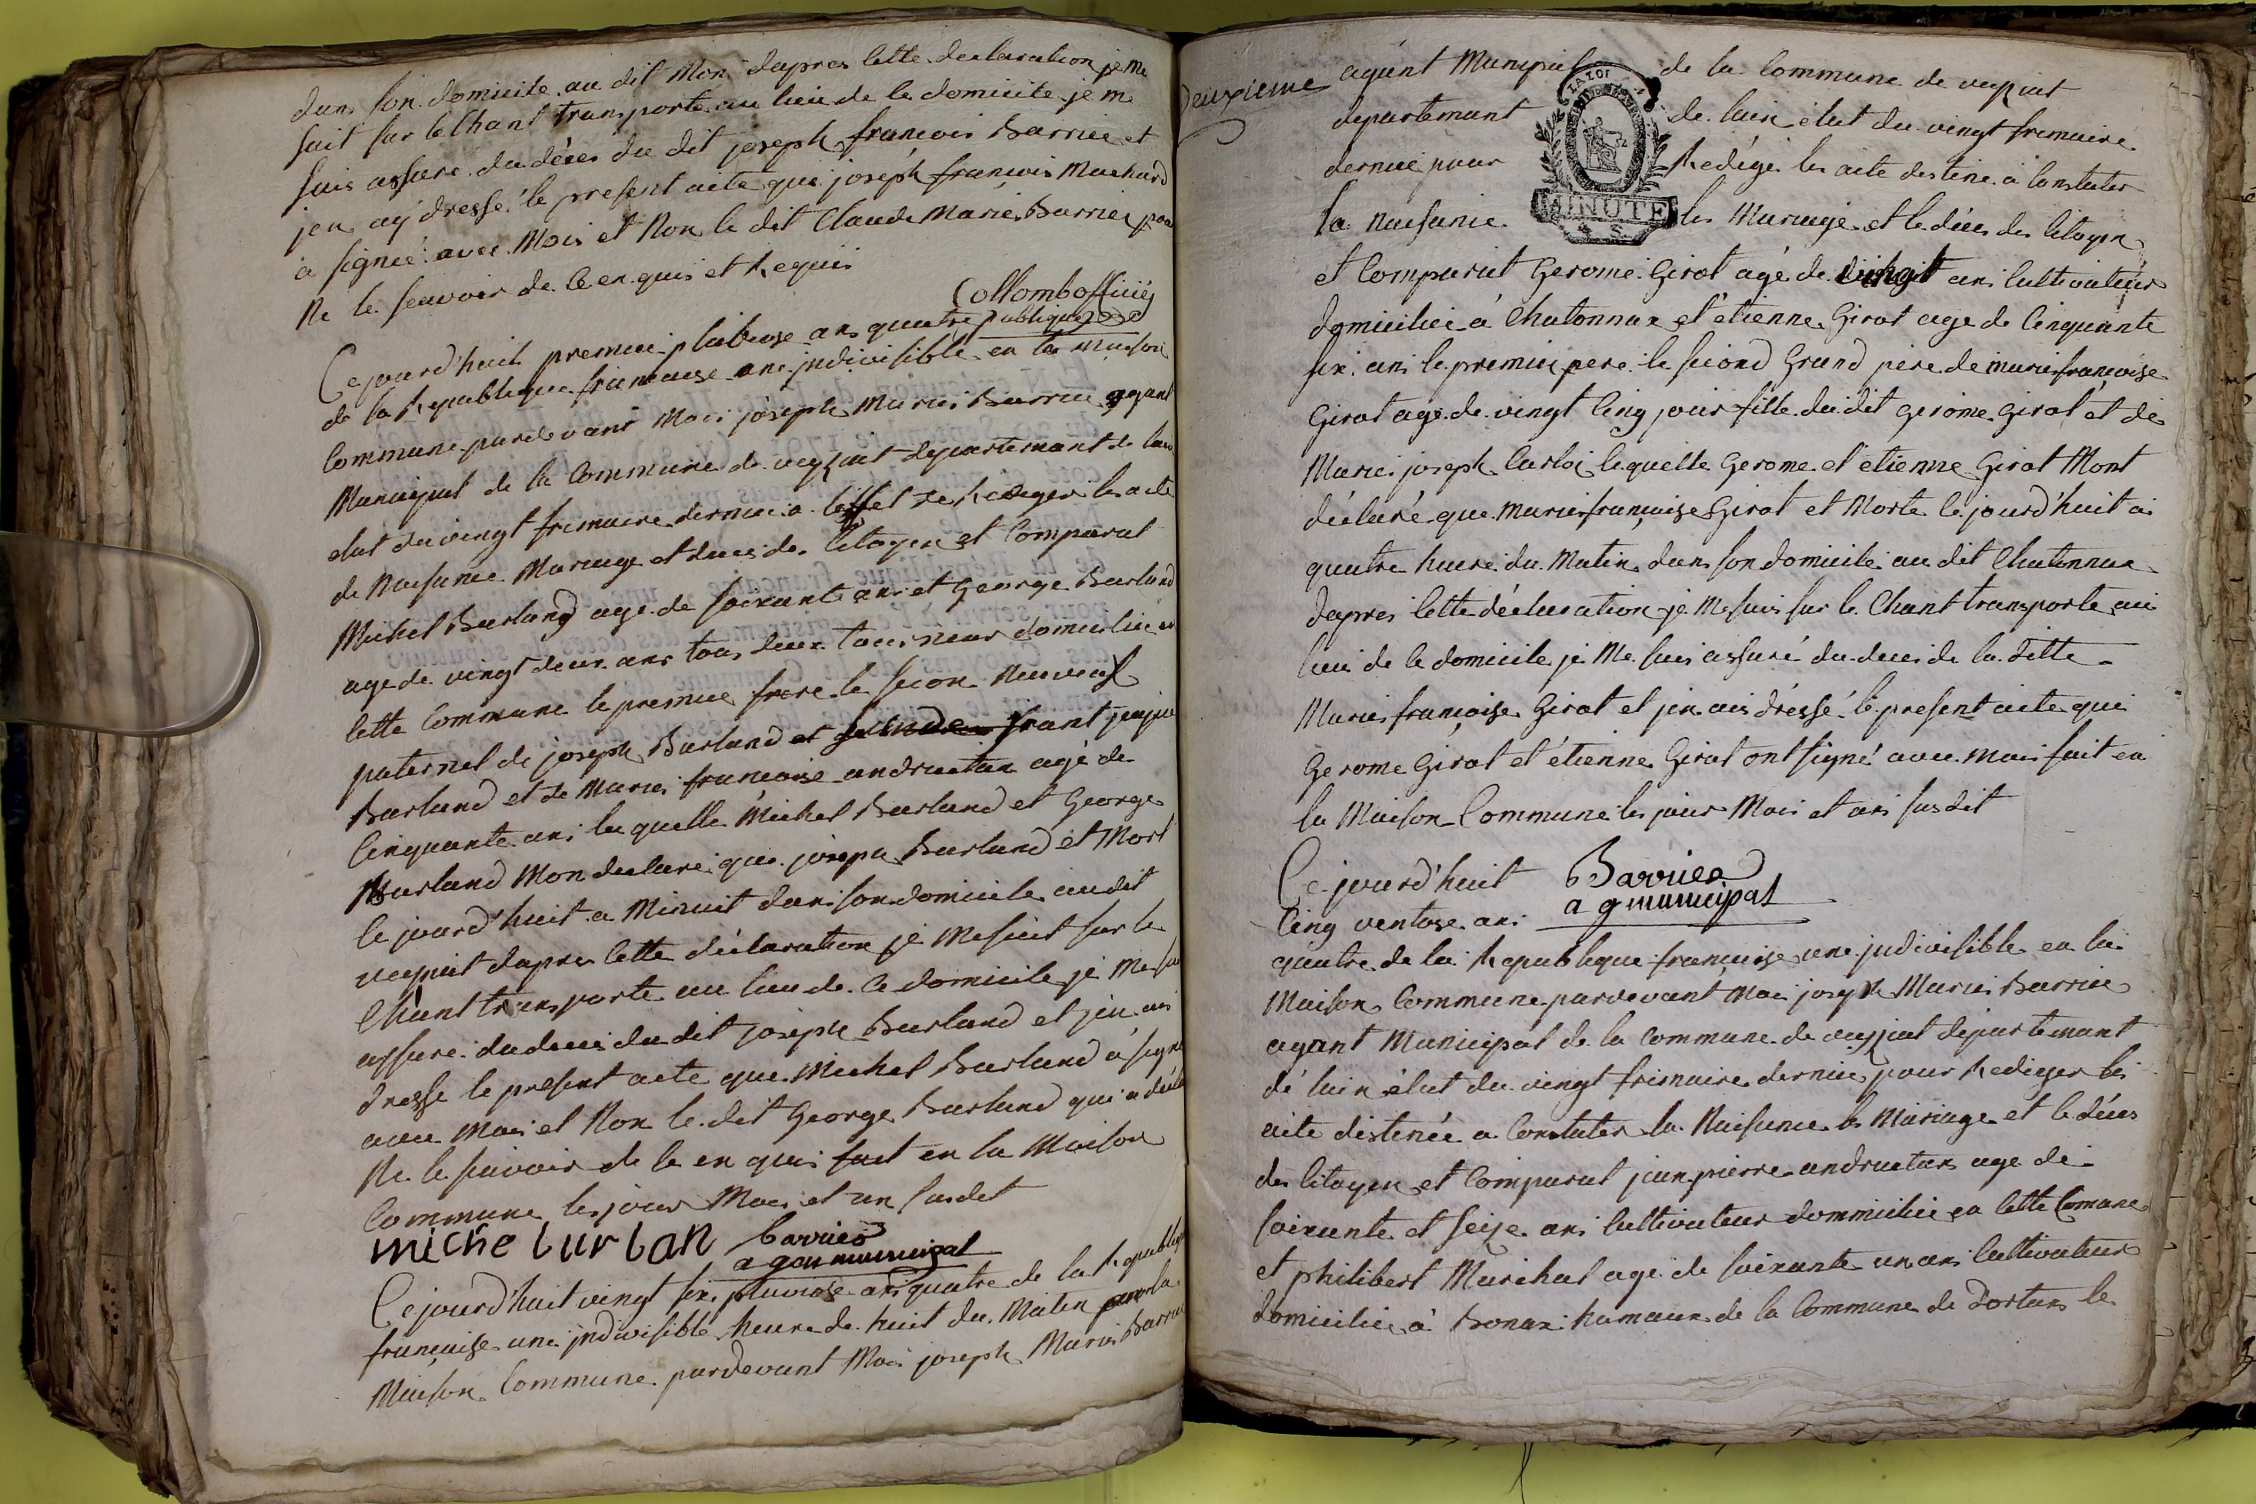 dans son domicile au dit Mons dapres cette declaration je me
suit sur le Chant transporte au lieu de le domicile je me
suis assure du déces du dit joseph françois Barrier et
jen ay dressé le present acte que joséph françois Machard
a signée avec Moi et Non le dit Claude Marie Barrier pour
Ne le scavoir de ce en quis et Requis
Collomb officiéy
publique
Ce jourd'huit premier plubiose ans quatre
de la Republique francaise une jndivisible en la maison
Commune pardevant Moi joseph Marie Barrier agant
Municipal de la Commune de veyziat departemant de lain
elut du vingt frimaire dernier a leffet de Rediger les acte
de Naisance Mariage et deces des Citoyen et Comparut
Michel Burland age de soixante ans et George Burland
age de vingt deux ans tous deux tourneur domicilié en
cette Commune le premier frere le secon Neuveux
paternel de joseph Burland et
Burland et de Marie francoise andruetan agé de
Cinquante ans la quelle Michel Burland et George
Burland Mon declaré que joseph Burland et Mort
ce jourd'huit a Minuit dans son domicile au dit
veyziat dapres cette déclaration je Me suit sur le
Chant transporte au lieu de ce domicile je Me suis
assure du deces du dit joseph Burland et jen ais
dresse le present acte que Michel Burland a signé
avec Moi et Non le dit George Burland qui a déclaré
Ne le savoir de ce en quis fait en la Maison
Commune les jour Mois et an susdit
miche burlan barrier
a gan municipal
Ce jourd'huit vingt six pluviose ans quatre de la Republique
française une jndivisible heure de huit du Matin par la
Maison Commune pardevant Moi joseph Marie Barrier
Deuxieme
agánt Municipal de la Commune de veyziat
departemant de lain élut du vingt frimaire
dernié pour Rédigé les acte destiné a Constater
LA LOI
MINUTE
la Naisance les Mariage et le déces des Citoyen
et Comparut Gerome Girot agé de vingt ans Cultivateur
domicilié à Chatonnax et étienne Girot age de Cinquante
six ans le premier pere le second Grand pere de marie françoise
Girot agé de vingt Cinq jour fille du dit gerome Girot et de
Marie joseph Carloz lequelle Gerome et etienne Girot Mont
déclaré que marie françoise Girot et Morte le jourd'huit à
quatre heure du Matin dans son domicile au dit Chatonnax
dapres cette déclaration je Me suis sur le Chant transporte au
lieu de le domicile je Me suis assuré du deces de la ditte
Marie françoise Girot et jen ais dréssé le present acte que
Gerome Girot et étienne Girot ont signé avec Moi fait en
la Maison Commune les jour Mois et ans susdit
Barrier
a g municipal
Ce jourd'huit
Cinq ventose ans
quatre de la Republique françaisse une jndivisible en la
Maison Commune pardevant Moi joseph Marie Barrier
agant Municipal de la Commune de veyziat départemant
de lain élut du vingt frimaire dernier pour Rediger les
acte destinée a Constater la Naisance les Mariage et le déces
des Citoyen et Comparut jean pierre andruetan age de
soixante et seize ans Cultivateur dommicilié en cette Comune
et philibert Marechal agé de soixante un ans Cultivateur
domicilié à Bonax hameaux de la Commune de Dortans le